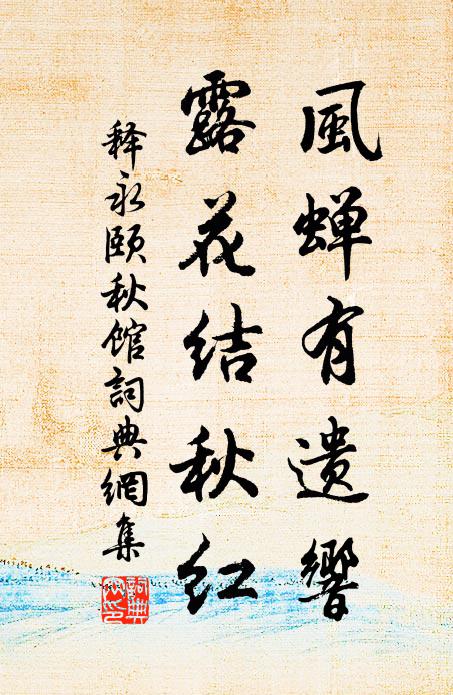 風蝉有遗響
露花结秋红
释永颐秋馆詞典網集